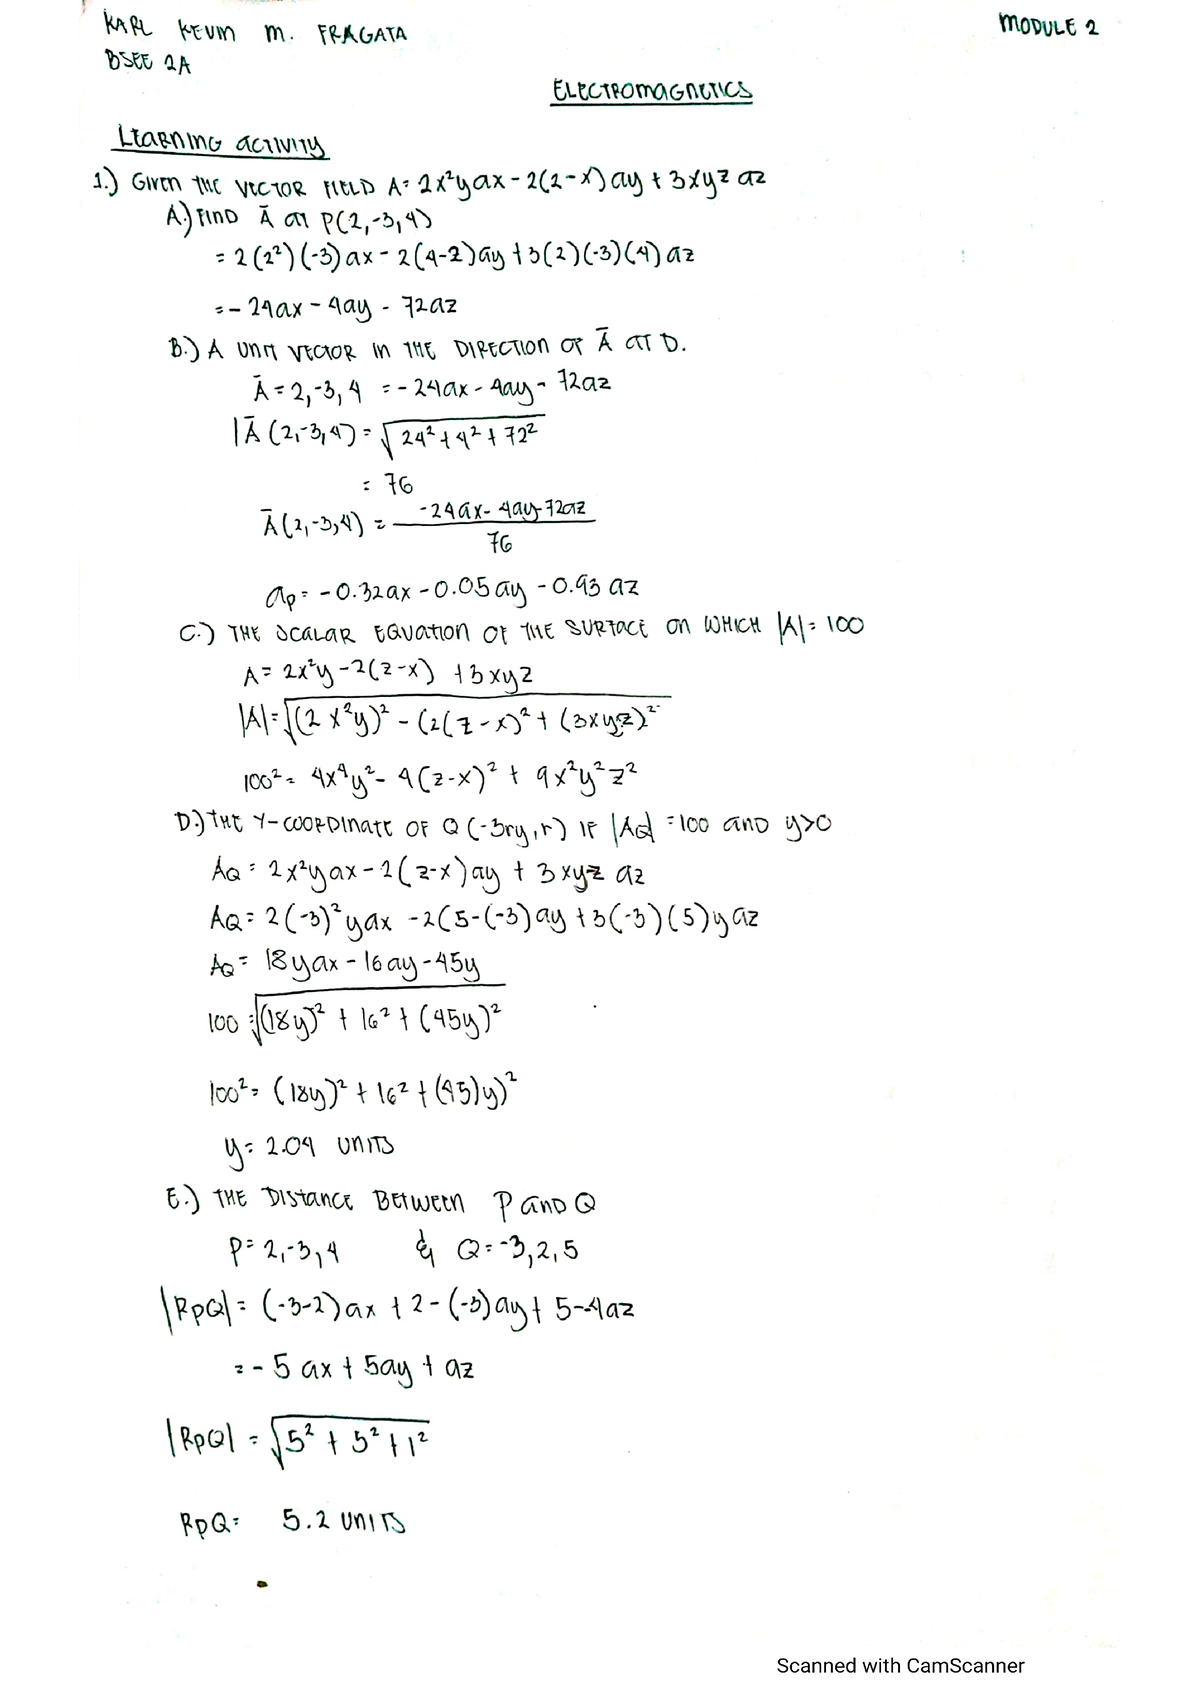 KARL KEVIN M. FRAGATA
MODULE 2
BSEE 2A
ELECTROMAGNETICS
LEARNING ACTIVITY
1.) GIVEN THE VECTOR FIELD A= 2x²yax - 2(z-x)ay + 3xyz az
A.) FIND Ā AT P(2,-3,4)
= 2(2²)(-3)ax - 2(4-2)ay + 3(2)(-3)(4)az
= - 24ax - 4ay - 72az
B.) A UNIT VECTOR IN THE DIRECTION OF Ā AT D.
Ā = 2,-3,4 = - 24ax - 4ay - 72az
|Ā (2,-3,4) = √24² + 4² + 72²
= 76
Ā(2,-3,4) = -24ax - 4ay - 72az
76
ap = -0.32ax - 0.05ay - 0.93 az
C.) THE SCALAR EQUATION OF THE SURFACE ON WHICH |A|= 100
A = 2x²y - 2(z-x) + 3xyz
|A| = √(2x²y)² - (2(z-x)² + (3xyz)²
100² = 4x⁴y² - 4(z-x)² + 9x²y²z²
D.) THE Y-COORDINATE OF Q(-3ry,r) IF |AQ| = 100 AND y>0
AQ = 2x²yax - 2(z-x)ay + 3xyz az
AQ = 2(-3)²yax - 2(5-(-3)ay + 3(-3)(5)yaz
AQ = 18yax - 16ay - 45y
100 = √(18y)² + 16² + (45y)²
100² = (18y)² + 16² + (45)y)²
y = 2.04 UNITS
E.) THE DISTANCE BETWEEN P AND Q
P = 2,-3,4 & Q = -3,2,5
|RPQ| = (-3-2)ax + 2-(-3)ay + 5-4az
= - 5 ax + 5ay + az
|RPQ| = √5² + 5² + 1²
RPQ = 5.2 UNITS
Scanned with CamScanner